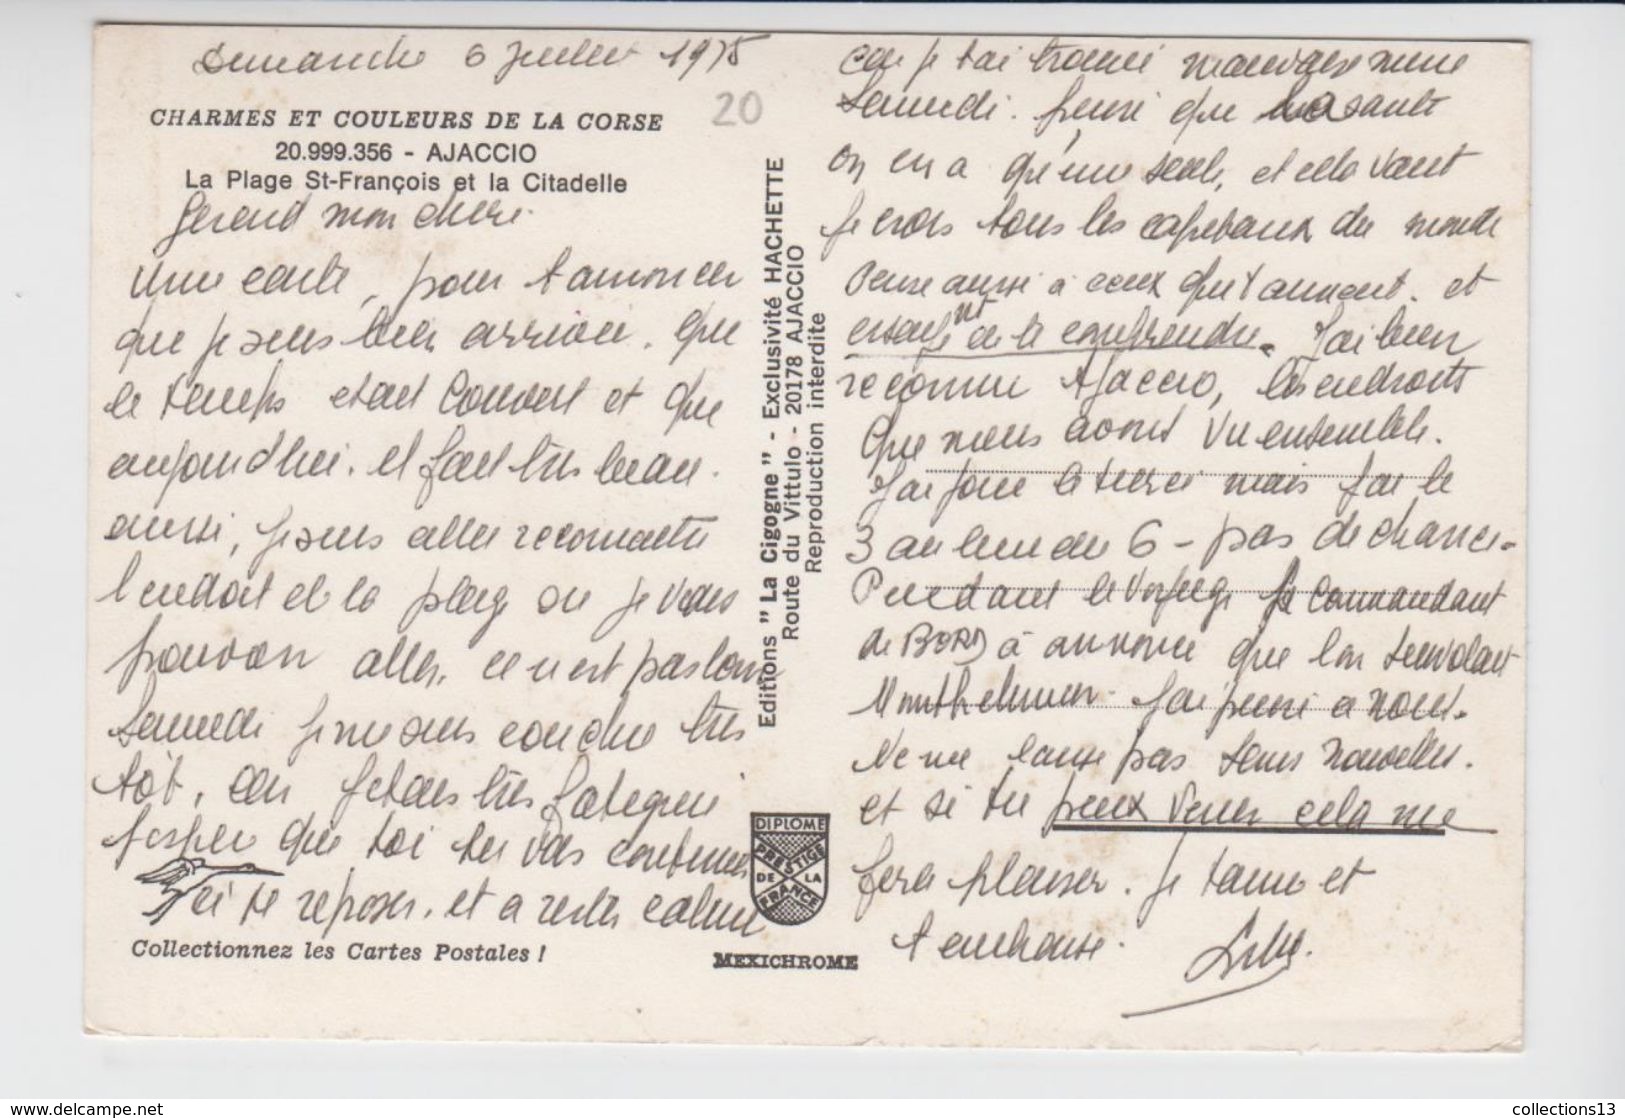 Dimanche 6 Juillet 1975
20
CHARMES ET COULEURS DE LA CORSE
20.999.356 - AJACCIO
La Plage St-François et la Citadelle
Gerard mon cheri.
Une carte, pour t'annoncer
que je suis bien arrivée. que
le temps etait couvert et que
aujourd'hui. il fait très beau.
aussi, je suis aller reconnaitre
l'endoit et la plage ou je vais
pouvoir aller, ce n'est pas loin
Samedi je me suis couchée très
tôt, car j'etais très fatiguée
J'espere que toi tu vas continuer
ici te reposer. et a rester calme
Collectionnez les Cartes Postales !
Editions " La Cigogne " - Exclusivité HACHETTE
Route du Vittulo - 20178 AJACCIO
Reproduction interdite
DIPLOME
PRESTIGE
DE LA
FRANCE
MEXICHROME
car je t'ai trouvé mauvaise mine
Samedi. pense que la santé
on en a qu'une seule, et cela vaut
je crois tous les capitaux du monde
Pense aussi à ceux qui t'aiment. et
de le comprendre. J'ai bien
reconnu Ajaccio, les endroits
que nous avons vu ensemble.
J'ai joué le tiercé mais j'ai le
3 au lieu du 6 - pas de chance.
Pendant le voyage le Commandant
de BORD à annoncé que l'on survolait
Monthelimar. J'ai pensé a nous.
Ne me laisse pas sans nouvelles.
et si tu peux venir cela me
fera plaisir. je t'aime et
t'embrasse.